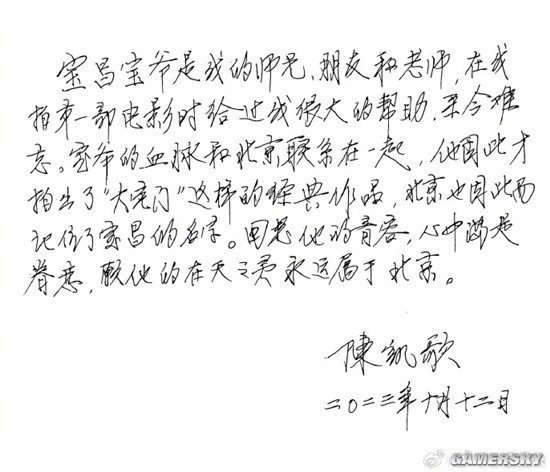 宝昌宝爷是我的师兄、朋友和老师,在我
拍第一部电影时给过我很大的帮助,至今难
忘。宝爷的血脉和北京联系在一起,他因此才
拍出了"大宅门"这样的经典作品,北京也因此而
记住了宝昌的名字。回思他的音容,心中满是
眷恋,愿他的在天之灵永远属于北京。
陳凯歌
二〇二三年十月十二日
GAMERSKY